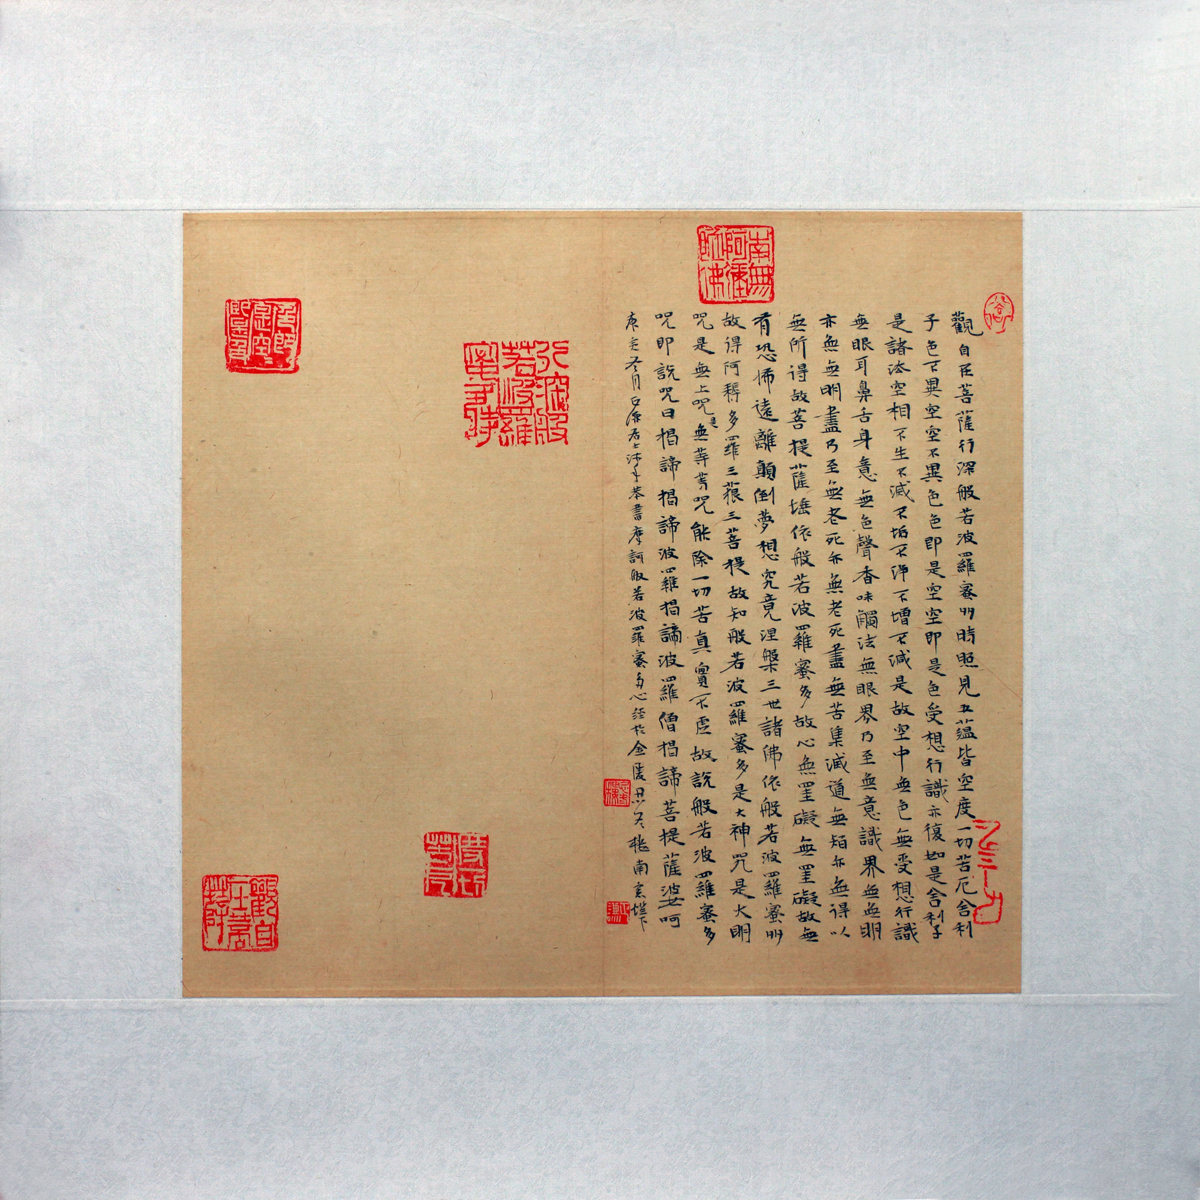 觀自在菩薩行深般若波羅蜜多時照見五蘊皆空度一切苦厄舍利
子色不異空空不異色色即是空空即是色受想行識亦復如是舍利子
是諸法空相不生不滅不垢不淨不增不減是故空中無色無受想行識
無眼耳鼻舌身意無色聲香味觸法無眼界乃至無意識界無無明
亦無無明盡乃至無老死亦無老死盡無苦集滅道無知亦無得以
無所得故菩提薩埵依般若波羅蜜多故心無罣礙無罣礙故無
有恐怖遠離顛倒夢想究竟涅槃三世諸佛依般若波羅蜜多
故得阿耨多羅三藐三菩提故知般若波羅蜜多是大神咒是大明
咒是無上咒是無等等咒能除一切苦真實不虛故說般若波羅蜜多
咒即說咒曰揭諦揭諦波羅揭諦波羅僧揭諦菩提薩婆呵
冬月石居士沐手恭書摩訶般若波羅蜜多心經於金陵城南
南無阿彌陀佛
行深般若波羅蜜多時
色即是空即是色
觀自在菩薩